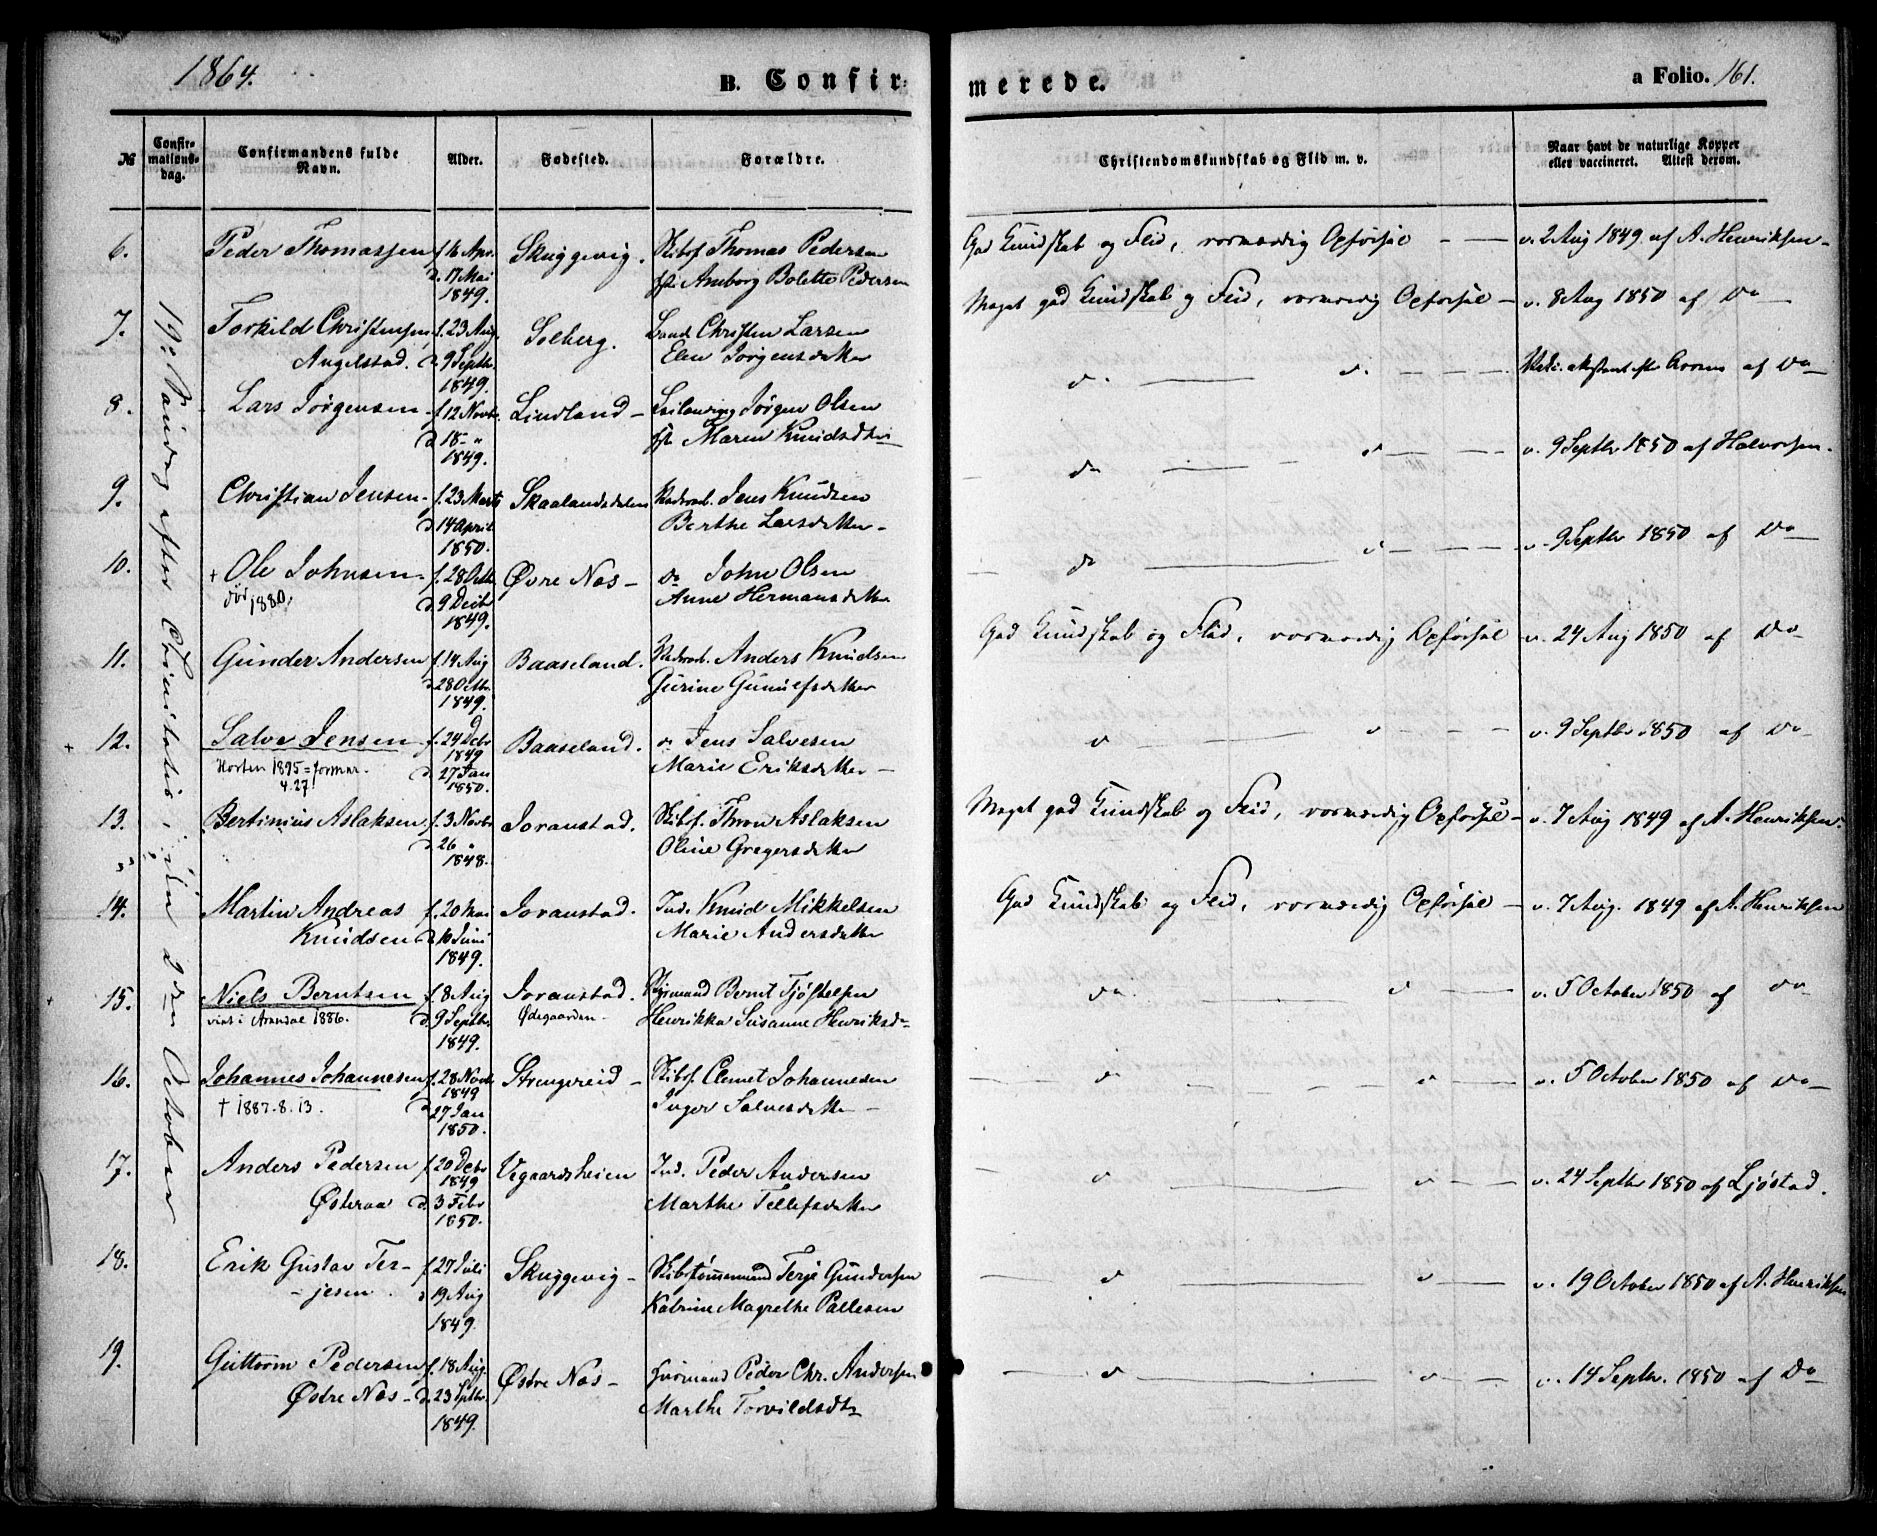 1864.
B. Confir-
merede.
a Folio. 161.
№
Confir-
mations-
dag.
Confirmandens fulde
Navn.
Alder.
Fødested.
Forældre.
Christendomskundskab og Flid m. v.
Naar havt de naturlige Kopper
eller vaccineret. Attest derom.
19de Søndag efter Trinitatis, den 2den October
6. Peder Thomassen f. 16 Apr. Skuggevig. Skibsf. Thomas Pedersen God Kundskab og Flid, vorneverdig Opførsel v. 2 Aug 1849 af A. Henriksen
d. 17 Mai
1849. Amborg Bolette Pedersen
7. Torkild Christensen f. 23 Aug. Solberg. Christen Larsen Meget god Kundskab og Flid, Opførsel v. 8 Aug 1850 af Do
Angelstad. d. 9 Septbr. Elen Jørgensdatter
1849.
8. Lars Jørgensen f. 12 Novbr. Lindland Jørgen Olsen do do af Do
d. 18 " Maren Knudsdtr
1849.
9. Christian Jensen f. 23 Marts Skaalandsdalen Jens Knudsen do v. 9 Septbr 1850 af Halvorsen.
d. 14 April Berthe Larsdatter
1850.
10. + Ole Johnsen f. 28 Octb. Øvre Næs do John Olsen do v. 9 Septbr 1850 af Do
dør 1880. d. 9 Decbr Anne Hermansdatter
1849.
11. Gunder Andersen f. 14 Aug Baaseland. Anders Knudsen God Kundskab og Flid, Opførsel v. 24 Aug 1850 af Do
d. 28 Octbr. Gurine Gunulfsdatter
1849.
+ 12. Salve Jensen f. 24 Decbr Baaseland. do Jens Salvesen do v. 9 Septbr 1850 af Do
1849
Horten 1895 = d. 27 Jan Marie Eriksdatter
4.27 1850.
13. Bertinius Aslaksen f. 3 Novbr Joranstad. Skibsf. Thron Aslaksen Meget god Kundskab og Flid, Opførsel v. 7 Aug 1849 af A. Henriksen.
d. 26 " Oline Gregersdatter
1848.
14. Martin Andreas f. 20 Mai Joranstad. Ind. Knud Mikkelsen God Kundskab og Flid, Opførsel v. 7 Aug. 1849 af A. Henriksen
Knudsen d. 10 Juni Marie Andersdatter
1849.
15. Niels Berntsen f. 8 Aug Joranstad. Styrmand Bernt Tjøstelsen do v. 5 October 1850 af Do
i Arendal 1886. d. 9 Septbr. Ødegaarden Henrikka Susanne Henriksd
1849.
16. Johannes Johannesen f. 28 Novb. Strengereid Skibsf. Clemet Johannesen do v. 5 October 1850 af Do
1849
† 1887.8.13. d. 27 Jan Inger Salvesdatter
1850.
17. Anders Pedersen f. 20 Decbr Vegaardsheien Ind. Peder Andersen do v. 24 Septbr 1850 af Ljøstad.
1849
Østeraa d. 3 Febr Marthe Tellefsdatter
1850.
18. Erik Gustav Ter- f. 27 Juli Skuggevig Skibstømmermand Terje Gundersen do v. 19 October 1850 af A. Henriksen
jesen d. 19 Aug Katrine Magrethe Pallesen
1849.
19. Guttorm Pedersen f. 18 Aug. Østre Næs Peder Chr. Andersen do v. 14 Septbr. 1850 af Do
Østre Næs d. 23 Septbr. Marthe Torvildsdtr
1849.